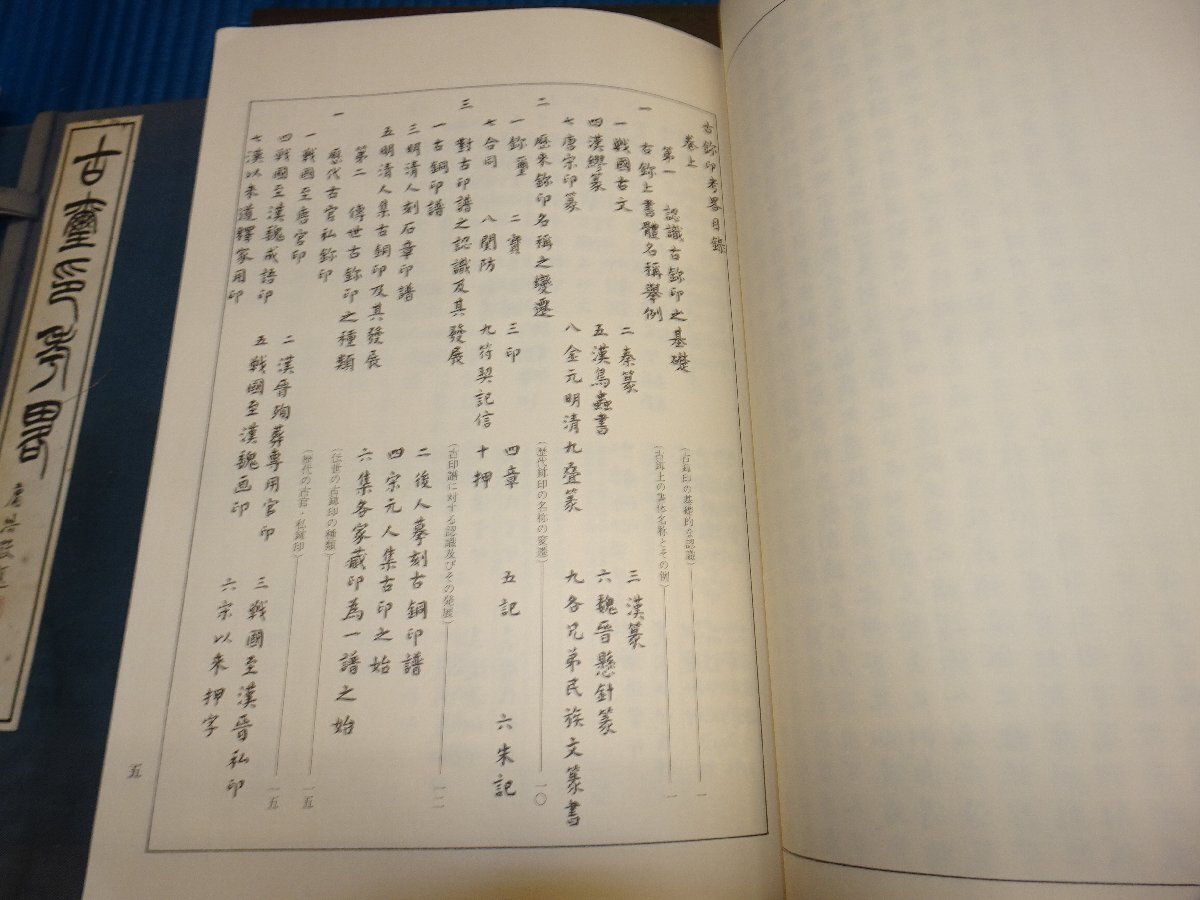 古鉨印考畧目錄
卷上
第一 認識古鉨印之基礎 (古鉨印の基礎的な認識) 一
一 古鉨上書體名稱舉例 (古鉨上の書体名称とその例) 一
一戰國古文 二秦篆 三漢篆
四漢繆篆 五漢鳥蟲書 六魏晉懸針篆
七唐宋印篆 八金元明清九叠篆 九各兄弟民族文篆書
二 歷來鉨印名稱之變遷 (歴代鉨印の名称の変遷) 一〇
一鉨璽 二寶 三印 四章 五記 六朱記
七合同 八關防 九符契記信 十押
三 對古印譜之認識及其發展 (古印譜に対する認識及びその発展) 一二
一古銅印譜 二後人摹刻古銅印譜
三明清人刻石章印譜 四宋元人集古印之始
五明清人集古銅印及其發展 六集各家藏印為一譜之始
第二 傳世古鉨印之種類 (伝世の古鉨印の種類) 一五
一 歷代古官私鉨印 (歴代の古官・私鉨印) 一五
一戰國至唐官印 二漢晉殉葬專用官印 三戰國至漢晉私印
四戰國至漢魏成語印 五戰國至漢魏画印 六宋以來押字
七漢以來道釋家用印
五
古璽印考畧